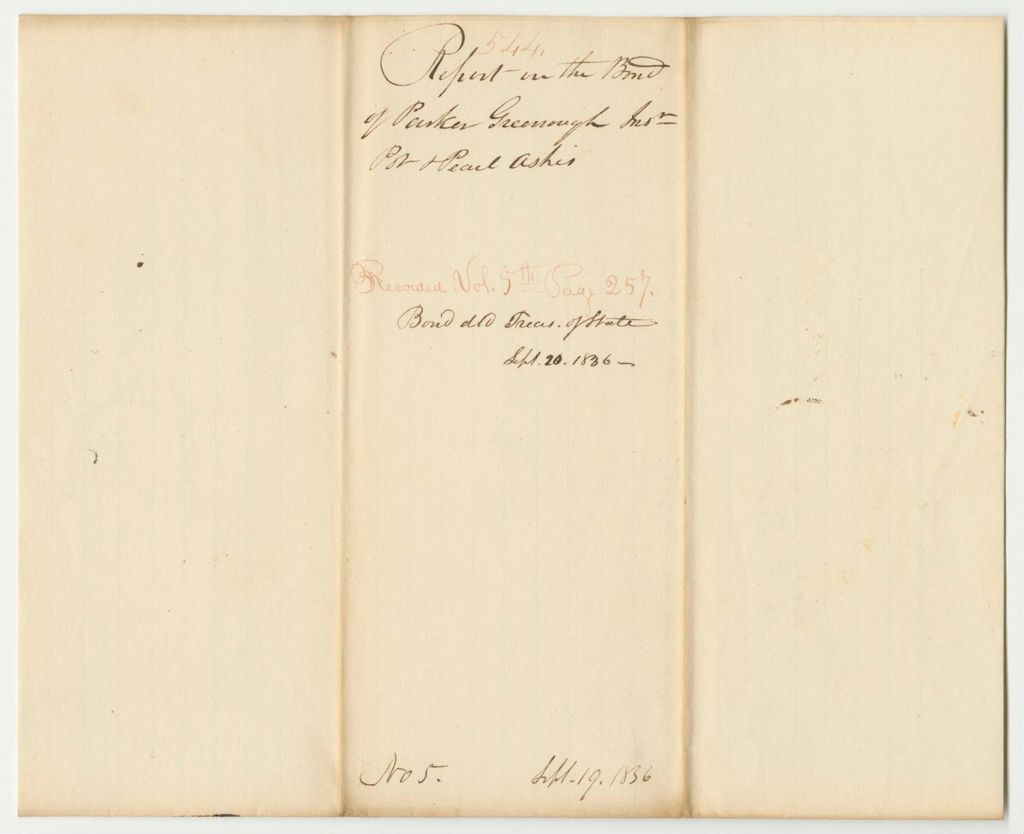 544.
Report on the Bond
of Parker Greenough Insr
Pot & Pearl Ashes
Recorded Vol. 5th Page 257.
Bond dld Treas. of State
Sept. 20. 1836 –
No 5. Sept. 19. 1836